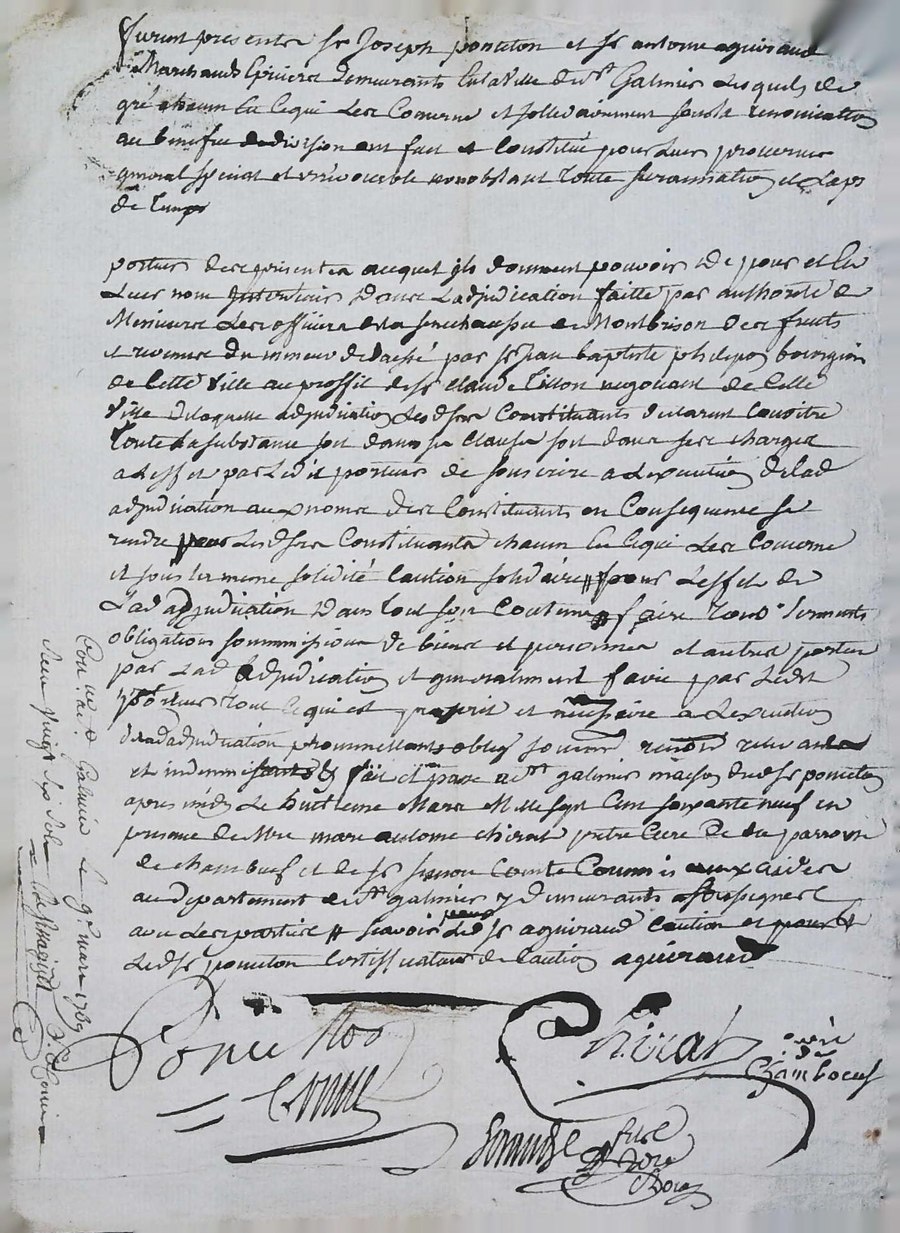 furent presents sr Joseph ponceton et sr antoine aguiraud
Marchands Epiciers demeurants en la Ville de st Galmier Lesquels de
gré chacun en ce qui Les Concerne et sollidairement sous la renonciation
au benefice de division ont fait et Constitué pour Leur procureur
general special et irrevocable nonobstant toute surannation et Laps
de temps
porteur des presentes auquel ils donnent pouvoir de pour et en
Leur nom Intervenir dans Ladjudication faitte par authorité de
Messieurs Les officiers de la senechaussée de Montbrison des fruits
et revenus du mineur par sr jean baptiste philipon bourgeois
de Cette Ville au proffit de sr Claude tillon negociant de Celle
Ville de laquelle adjudication Lesd srs Constituants declarent Connoitre
toute la substance soit dans sa Clause soit dans ses charges
a Leffet par Ledit porteur de souscrire a Lexecution de lad
adjudication aux noms des Constituants en Consequence se
rendre pour Lesd srs Constituants chacun en ce qui Les Concerne
et sous la meme solidité Caution solidaire pour Leffet de
Lad adjudication dans tout son Contenu faire tous serments
obligations soummissions de biens et personnes et autres portés
par Lad adjudication et generalement faire par Ledit
porteur tout ce qui est prescrit et necessaire a Lexecution
de lad adjudication promettants oblig soumis renon relevant
et indemniser fait et passé a st galmier maison dud sr ponceton
apres midy Le huitieme Mars Mille sept Cent soixante neuf en
presence de Mre marc antoine Chirat pretre Curé de la parroisse
de chambeuf et de sr simon Comte Commis aux aides
au departement de st galmier y demeurants soussignes
avec Les parties scavoir Led sr aguiraud Caution et
Led sr ponceton Certifficateur de Caution aguiraud
Ponceton
Chirat curé
de
Chambœuf
Comte
Con. a st Galmier Le 9e mars 1769